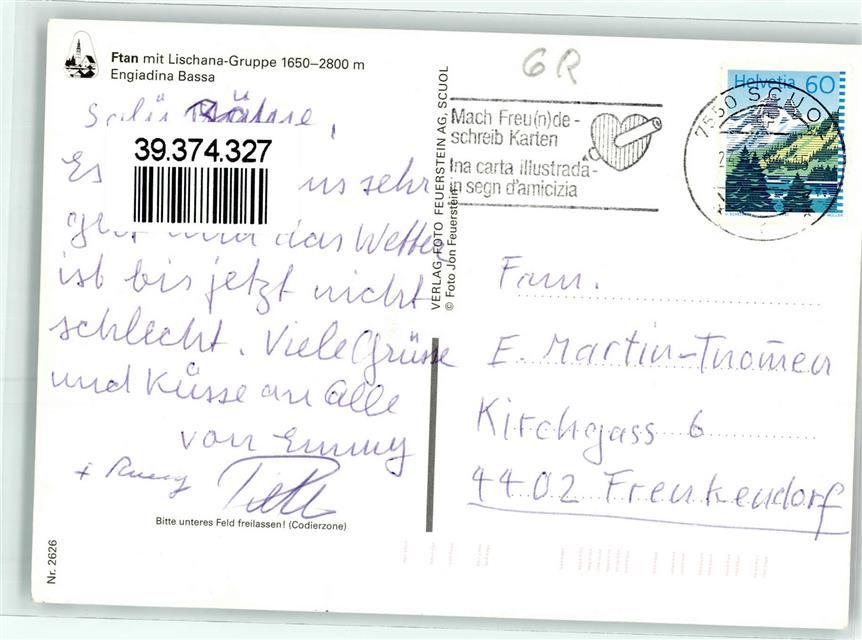 Ftan mit Lischana-Gruppe 1650–2800 m
Engiadina Bassa
Salü
39.374.327
Es uns sehr
gut und das Wetter
ist bis jetzt nicht
schlecht. Viele Grüsse
und Küsse an Alle
von Emmy
+
Bitte unteres Feld freilassen! (Codierzone)
Nr. 2626
VERLAG FOTO FEUERSTEIN AG, SCUOL
© Foto Jon Feuerstein
GR
Mach Freu(n)de -
schreib Karten
Ina carta illustrada -
in segn d'amicizia
Helvetia 60
7550 SCUOL
Fam.
E. Martin-Thomen
Kirchgass 6
4402 Frenkendorf